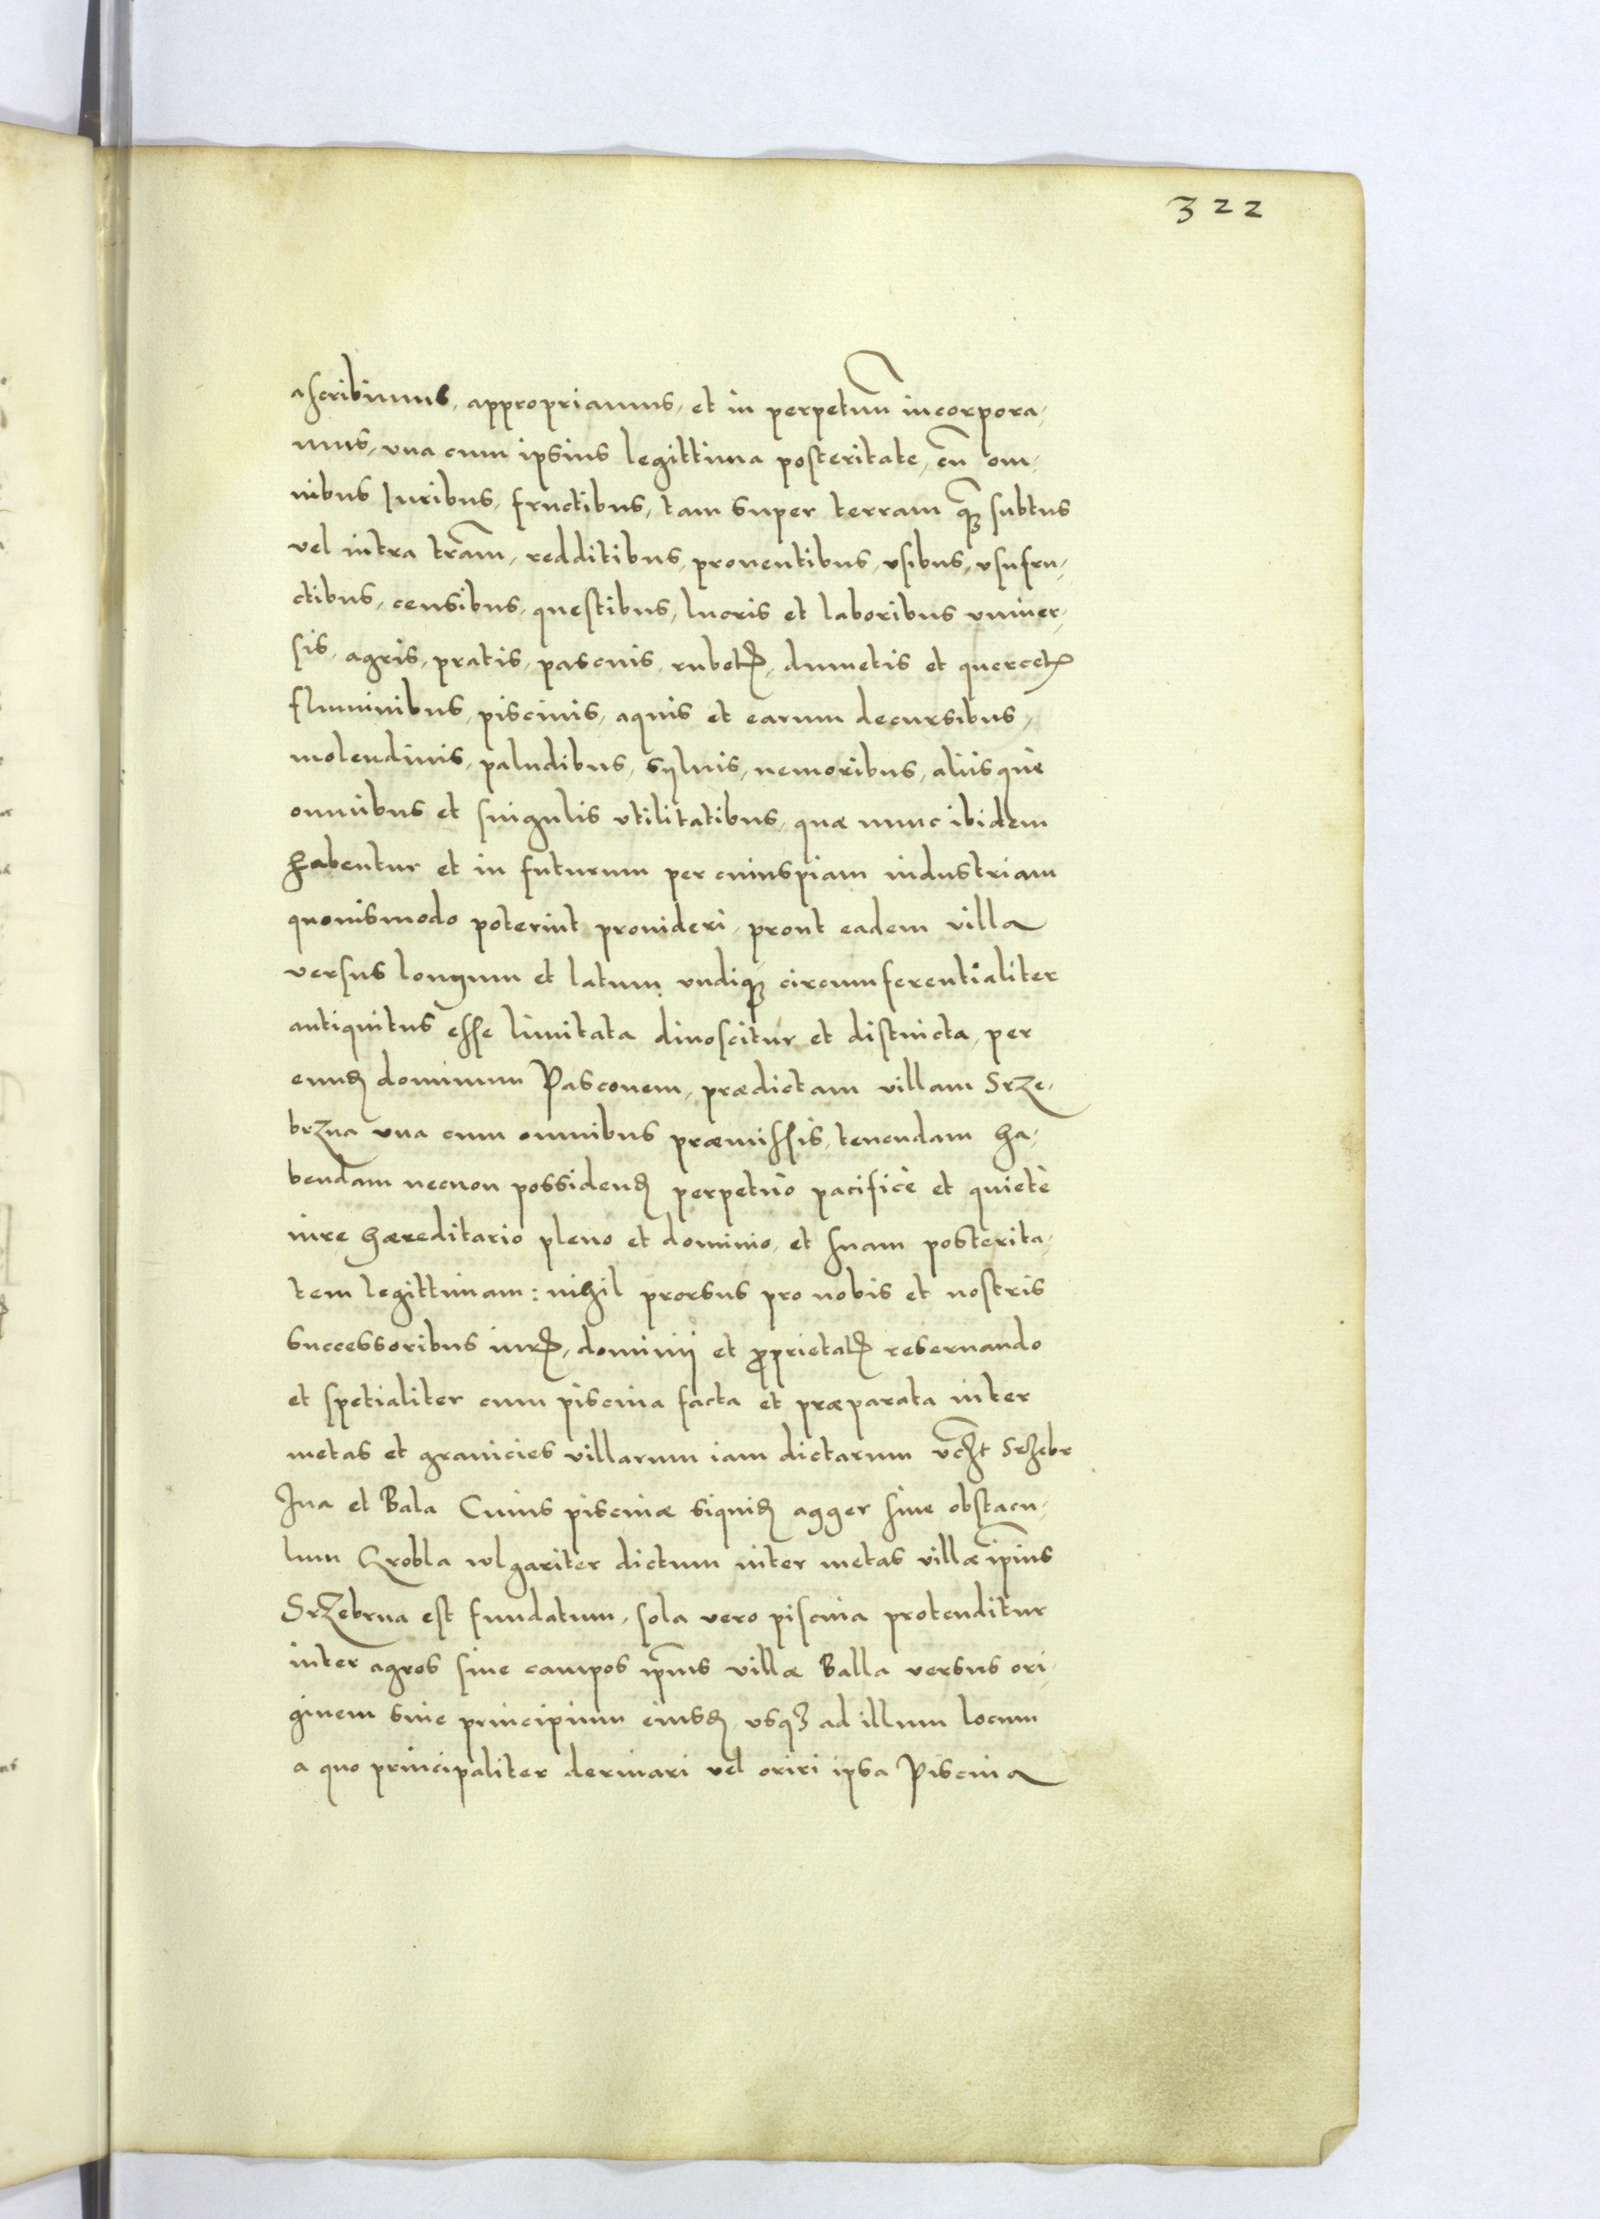 322
ascribimus, appropriamus, et in perpetuũ incorpora,
mus, vna cum ipsius legittima posteritate, cũ om,
nibus Iuribus, fructibus, tam super terram q̃ꝫ subtus
vel intra trãm, redditibus, prouentibus, vsibus, vsufru,
ctibus, censibus, questibus, lucris et laboribus vniuer,
sis, agris, pratis, pascuis, rubetꝭ, dumetis et quercetꝭ
fluminibus, piscinis, aquis et earum decursibus,
molendinis, paludibus, syluis, nemoribus, aliisquè
omnibus et singulis vtilitatibus, quæ nunc ibidem
habentur et in futurum per cuiuspiam industriam
quouismodo poterint prouideri, prout eadem villa
versus longum et latum vndiqꝫ circumferentialiter
antiquitus esse limitata dinoscitur et distincta, per
eundẽ dominum Pasconem, prædictam villam Srze,
brzna vna cum omnibus præmissis, tenendam ha,
bendam necnon possidendẽ perpetuò pacificè et quietè
iure hæreditario pleno et dominio, et suam posterita,
tem legittimam: nihil prorsus pro nobis et nostris
successoribus iurꝭ, dominij et ꝓprietatꝭ reseruando
et spetialiter cum piscina facta et præparata inter
metas et granicies villarum iam dictarum vcꝫt Srzebr
zna et Bala Cuius piscinæ siquidẽ agger siue obstacu,
lum Grobla wlgariter dictum inter metas villæ ip̃ius
Srzebrna est fundatum, sola vero piscina protenditur
inter agros siue campos ip̃ius villæ Balla versus ori,
ginem siue principium eiusdẽ, vsqꝫ ad illum locum
a quo principaliter deriuari vel oriri ipsa Piscina